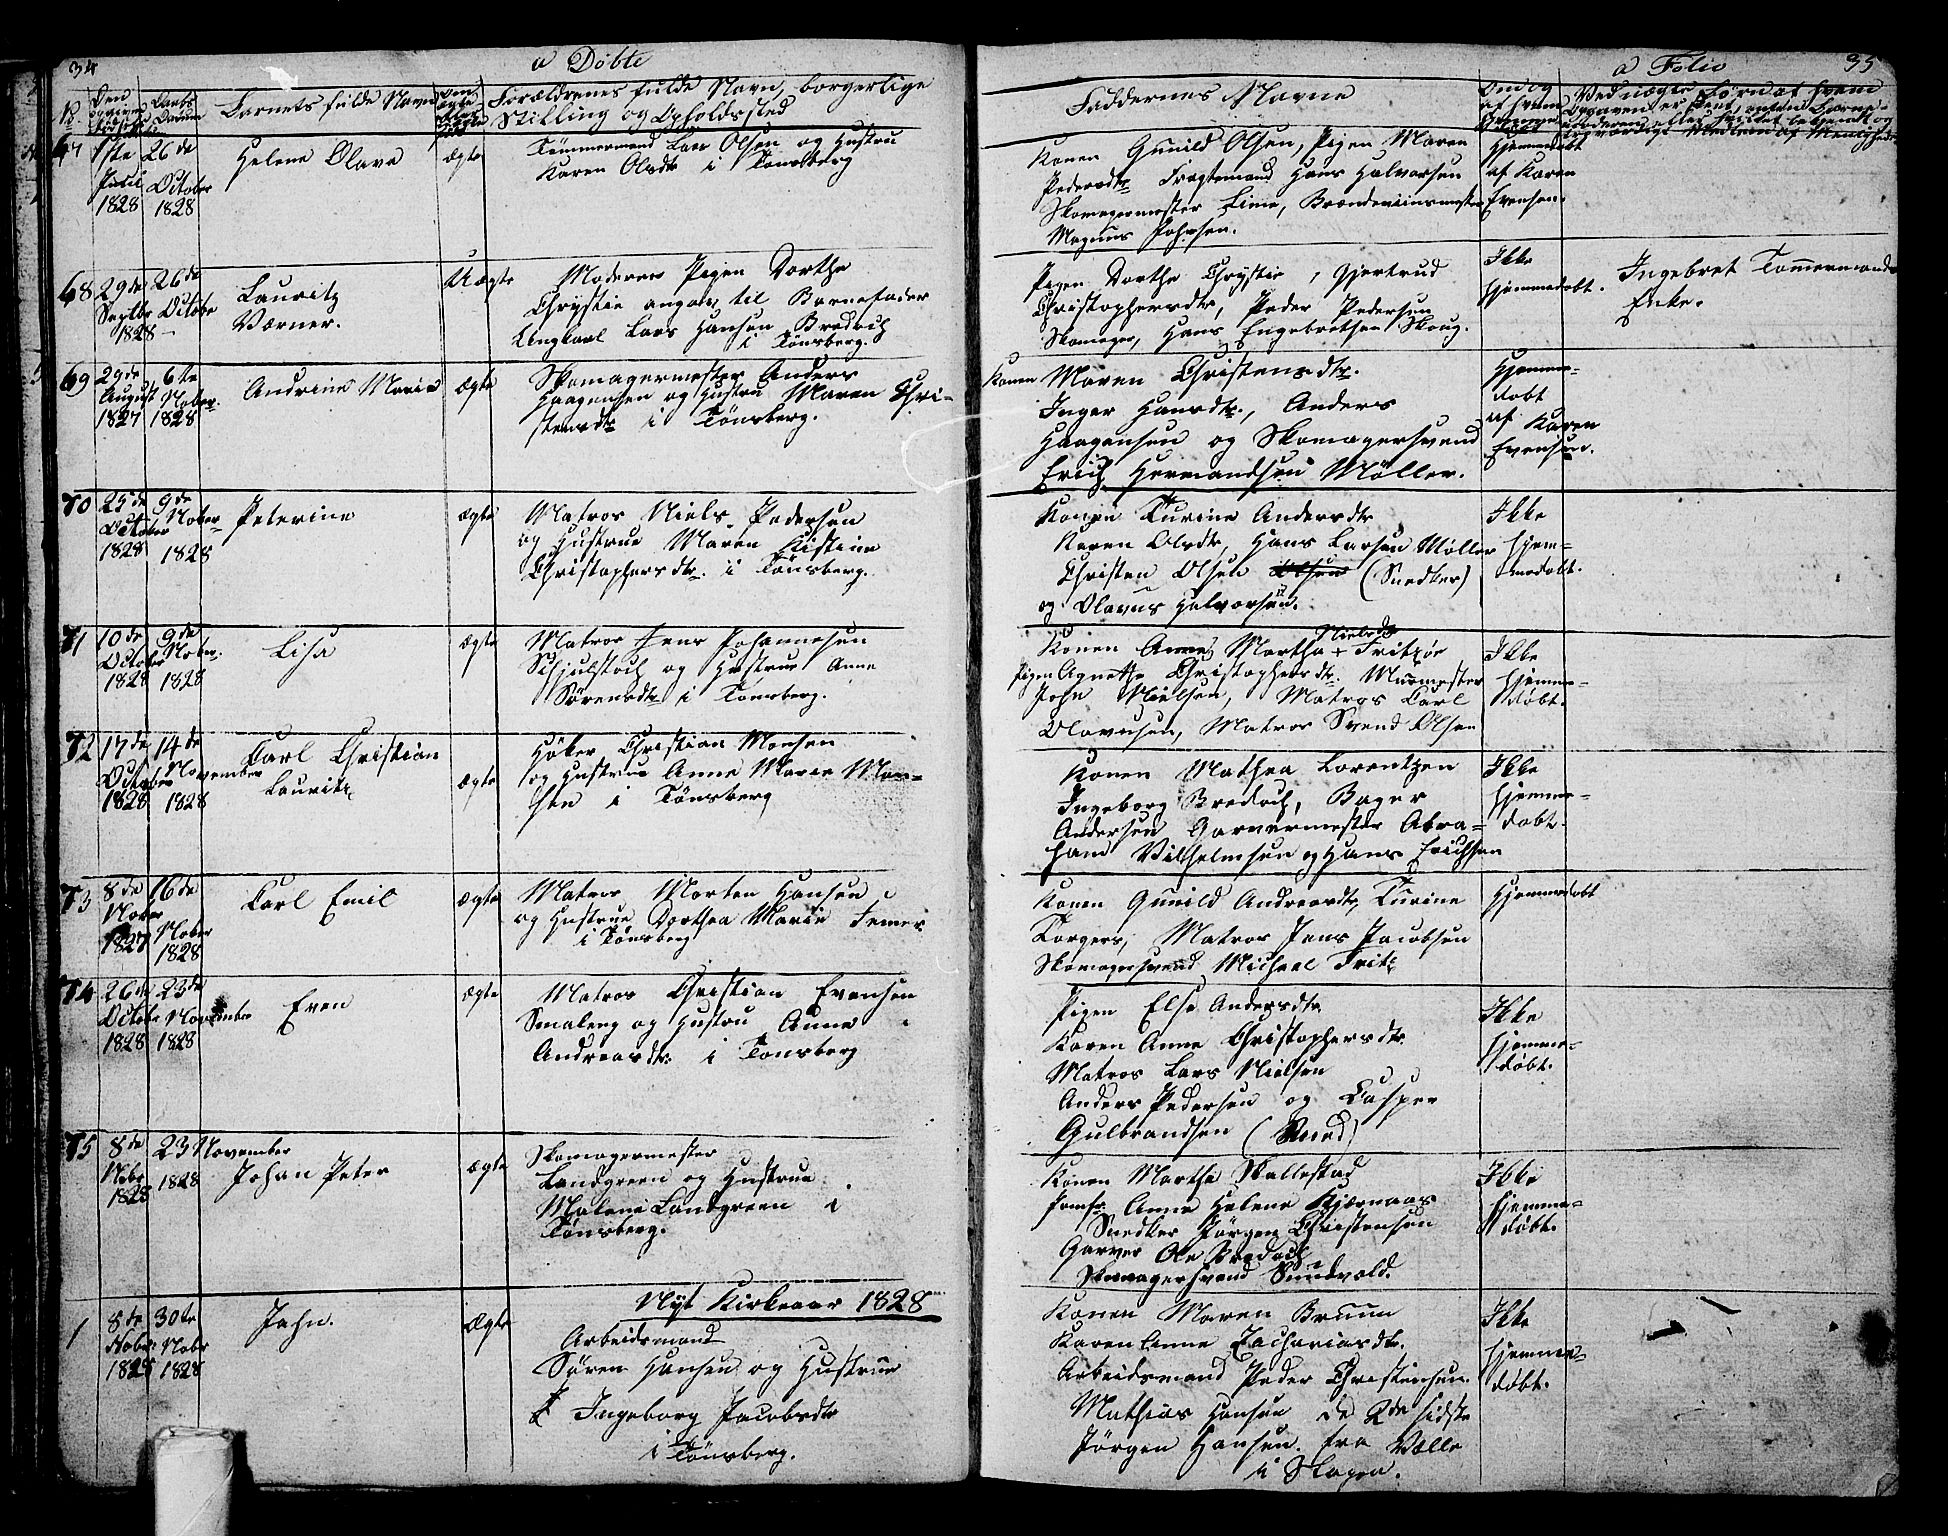 34
a Døbte
Barnets fulde Navn
Forældrenes fulde Navn, borgerlige
Stilling og Opholdssted
67
1ste
Julii
1828
26de
October
1828
Helene Olava
ægte
Tømmermand Lars Olsen og Hustru
Karen Olsdtr i Tønsberg
68
29de
Septbr
1828
26de
Octobr
Lauritz
Værner.
Uægte
Moderen Pigen Dorthe
Chrystie angav til Barnefader
Ungkarl Lars Hansen Bredoch
i Tønsberg.
69
29de
August
1827
6te
Nober
1828
Andrine Maria
ægte
Skomagermester Anders
Haagensen og Hustru Maren Chri-
stensdtr i Tønsberg.
70
25de
October
1828
9de
Nober
1828
Peterine
ægte
Matros Niels Pedersen
og Hustrue Maren Kistine
Christophersdtr. i Tønsberg.
71
10de
October
1828
9de
Nobr.
1828
Lisa
ægte
Matros Jens Johannesen
Schjulstoch og Hustrue Anne
Sørensdtr i Tønsberg.
72
17de
October
1828
14de
November
1828
Carl Christian
Lauritz
ægte
Høker Christian Monsen
og Hustrue Anne Marie Mon-
sen i Tønsberg
73
8de
Nober
1827
16de
Nober
1828
Carl Emil
ægte
Matros Morten Hansen
og Hustrue Dorthea Marie
i Tønsberg
74
26de
Octobr
1828
23de
November
1828
Even
ægte
Matros Christian Evensen
Smaleng og Hustru Anne
Andreasdtr. i Tønsberg
75
8de
Nobr
1828
23 November
1828
Johan Peter
ægte
Skomagermester
Landgreen og Hustrue
Malene Landgreen i
Tønsberg.
Nyt Kirkeaar 1828
1
8de
Nobr.
1828
30te
Nobr
1828
Jahn.
Ægte
Arbeidsmand
Søren Hansen og Hustrue
Ingeborg Jacobsdtr
i Tønsberg.
a Folio
35
Faddernes Navne
Konen Gunild Olsen, Pigen Maren
Pedersdtr Fragtemand Hans Halvorsen
Skomagermester Lime, Brændeviinsmester
Magnus Johnsen.
Hjemmedøbt
af Karen
Evensen.
Pigen Dorthe Chrystie, Gjertrud
Christophersdtr, Peder Pedersen
Skomager, Hans Engebretsen Skoug.
Ikke
hjemmedøbt.
Ingebret Tømmermands
Enke.
Konen Maren Christensdtr.
Inger Hansdtr., Anders
Haagensen og Skomagersvend
Erich Hermandsen Møller.
Hjemme-
døbt
af Karen
Evensen.
Konen Turine Andersdtr
Karen Olsdtr, Hans Larsen Møller
Christen Olsen Olsen (Snedker)
og Olavus Halvorsen.
Ikke
hjem-
medøbt.
Nielsdtr
Konen Anne Martha + Fritzøe
Pigen Agnethe Christophersdtr. Murmester
John Nielsen, Matros Carl
Olavusen, Matros Svend Olsen
Ikke
hjemme-
døbt.
Konen Mathea Lorentzen
Ingeborg Bredoch, Bager
Andersen Garvermester Abra-
ham Vilhelmsen og Hans Erichsen
Ikke
hjemme-
døbt.
Konen Gunild Andreasdtr, Turine
Torgers, Matros Jens Jacobsen
Skomagersvend Michael Fritz
Hjemmedøbt
Pigen Else Andersdtr
Karen Anne Christophersdtr
Matros Lars Nielsen
Anders Pedersen og Casper
Gulbrandsen
Ikke
hjemme-
døbt.
Konen Marthe Skallestad
Jomfr. Anne Helene Kjærnaas
Snedker Jørgen Christensen
Garver Ole Bredoch
Skomagersvend Sundvold.
Ikke
hjemme-
døbt.
Konen Maren Bruun
Karen Anne Zachariasdtr.
Arbeidsmand Peder Christensen.
Mathias Hansen de 2de sidste
Jørgen Hansen. fra Valle
i Slagen.
Ikke
hjemme-
døbt.